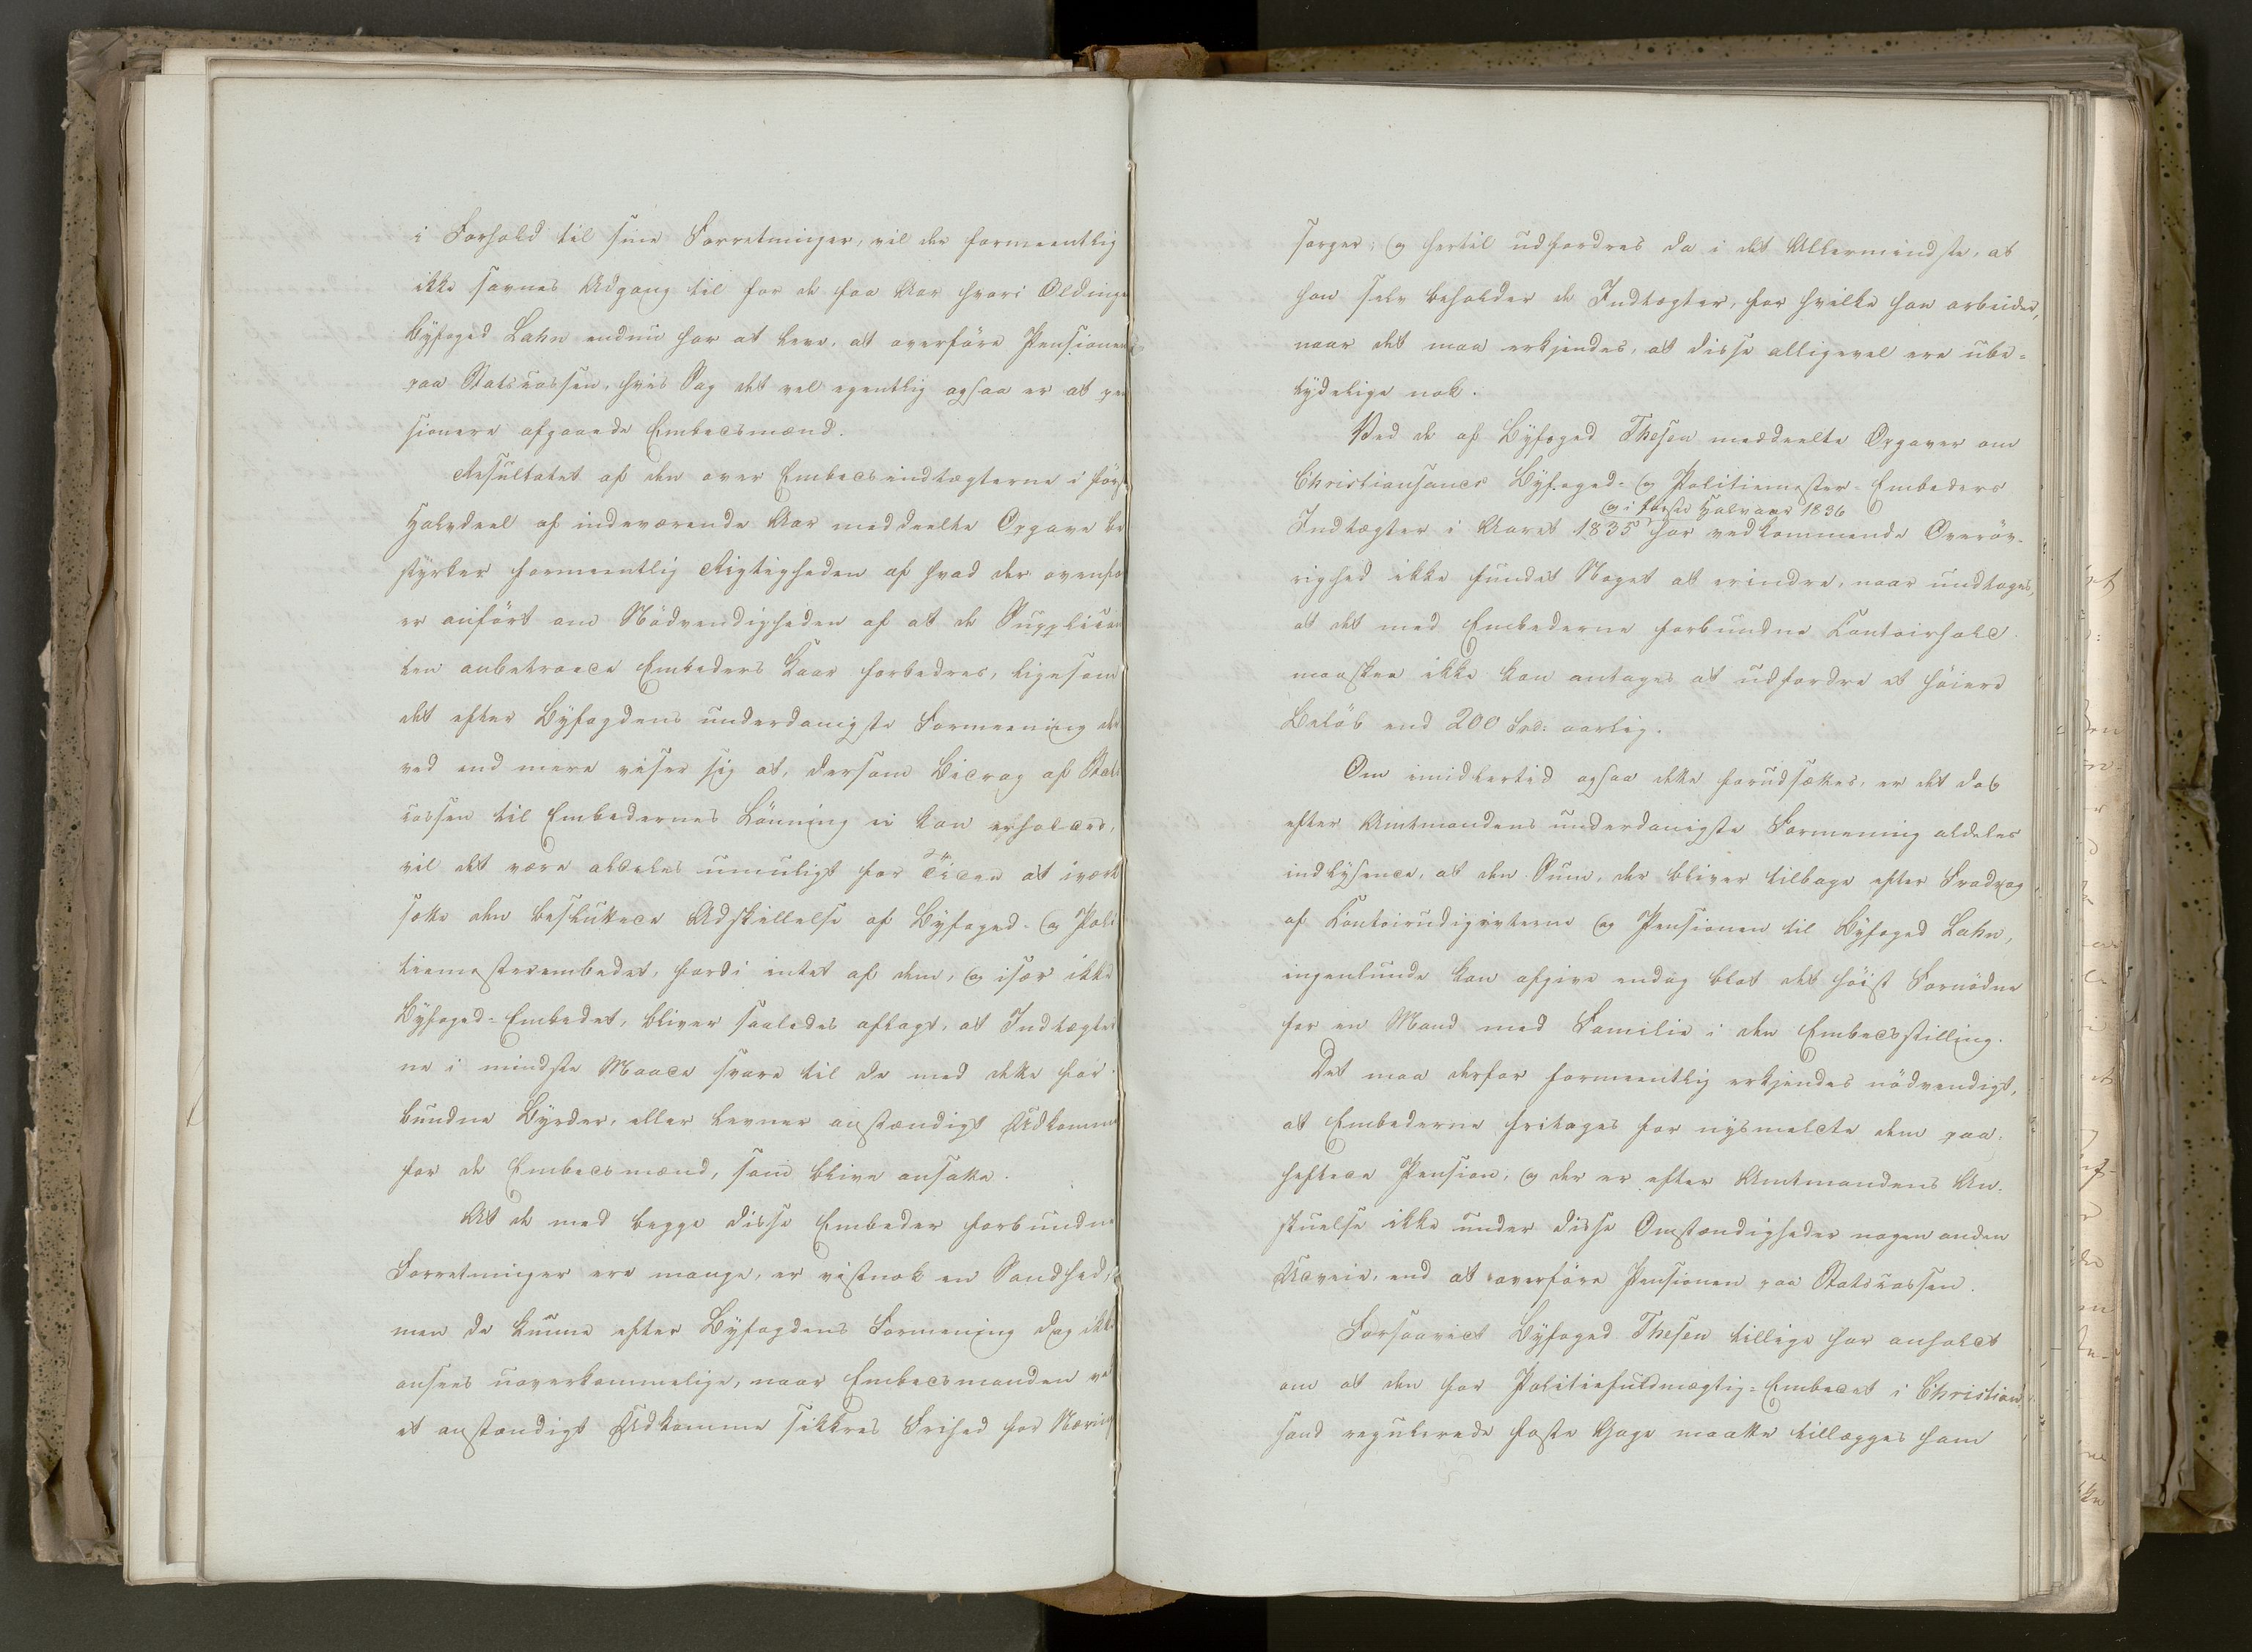 i Forhold til sine Forretninger, vil der formeentlig
ikke savnes Adgang til for de faa Aar hvori Oldingen
Byfoged Lahn endnu har at leve, at overføre Pensionen
paa Statscassen, hvis Sag det vel egentlig ogsaa er at pen
sionere afgaaede Embedsmænd.
Resultatet af den over Embedsindtægterne i først
Halvdeel af indeværende Aar meddeelte Opgave be
styrker formeentlig Rigtigheden af hvad der ovenfor
er anført om Nödvendigheden af at de Supplican
ten anbetroede Embeders Kaar forbedres, ligesom
det efter Byfogdens underdanigste Formeening der
ved end mere viser sig at, dersom Bidrag af Stats
cassen til Embedernes Lønning ei kan erholdes,
vil det være aldeles umuligt for Tiden at iværk
sætte den besluttede Adskillelse af Byfoged- og Poli
tiemesterembedet, fordi intet af dem, og især ikke
Byfoged-Embedet, bliver saaledes aflagt, at Indtægter
ne i mindste Maade svare til de med dette for
bundne Byrder, eller levner anstændigt Udkomme
for de Embedsmænd, som blive ansatte.
At de med begge disse Embeder forbundne
Forretninger ere mange, er vistnok en Sandhed,
men de kunne efter Byfogdens Formening dog ikke
ansees uoverkommelige, naar Embedsmanden ved
et anstændigt Udkomme sikkres Frihed for Nærings
sorger; og hertil udfordres da i det Allermindste, at
han selv beholder de Indtægter, for hvilke han arbeider,
naar det maa erkjendes, at disse alligevel ere ube-
tydelige nok.
Ved de af Byfoged Thesen meddeelte Opgaver om
Christiansands Byfoged- og Politiemester-Embeders
og i første Halvaar 1836
Indtægter i Aaret 1835 har vedkommende Overøv-
righed ikke fundet Noget at erindre, naar undtages,
at det med Embederne forbundne Contoirhold
maaskee ikke kan antages at udfordre et høiere
Beløb end 200 Spd: aarlig.
Om imidlertid ogsaa dette forudsættes, er det dog
efter Amtmandens underdanigste Formening aldeles
indlysende, at den Sum, der bliver tilbage efter Fradrag
af Contoirudgivterne og Pensionen til Byfoged Lahn,
ingenlunde kan afgive endog blot det høist Fornødne
for en Mand med Familie i den Embedsstilling.
Det maa derfor formeentlig erkjendes nödvendigt,
at Embederne fritages for nysmeldte dem paa-
heftede Pension, og der er efter Amtmandens An-
skuelse ikke under disse Omstændigheder nogen anden
Udveie, end at overføre Pensionen paa Statscassen.
Forsaavidt Byfoged Thesen tillige har anholdt
om at den for Politiefuldmægtig-Embedet i Christian
sand regulerede faste Gage maatte tillægges ham